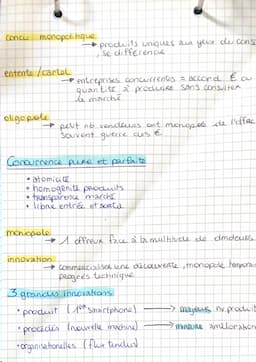 concu monopolitique
→ produits uniques aux yeux du cons
, se différencie
entente / cartel
→ entreprises concurrentes = accord € ou
quantité à produire sans consulter
le marché
oligopole
→ petit nb vendeurs ont monopole de l'offre
souvent guerre des €
Concurrence pure et parfaite
• atomicité
• homogénité produits
• transparence marché
• libre entrée et sortie
monopole
→ 1 offreur face à la multitude de
innovation
→ commercialiser une découverte, monopole
progrès technique
3 grandes innovations
• produit (1er smartphone) → majeure nv produit
• procédés (nouvelle machine) → mineure amélioration
• organisationelles (flux tendus)